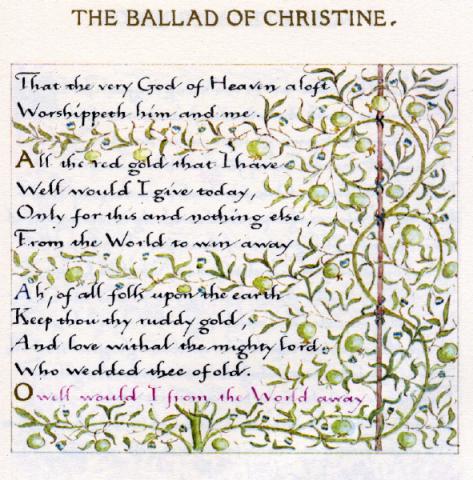 THE BALLAD OF CHRISTINE.
That the very God of Heaven aloft
Worshippeth him and me.
All the red gold that I have
Well would I give today,
Only for this and nothing else,
From the World to win away
Ah, of all folk upon the earth
Keep thou thy ruddy gold,
And love withal the mighty lord
Who wedded thee of old.
O well would I from the World away